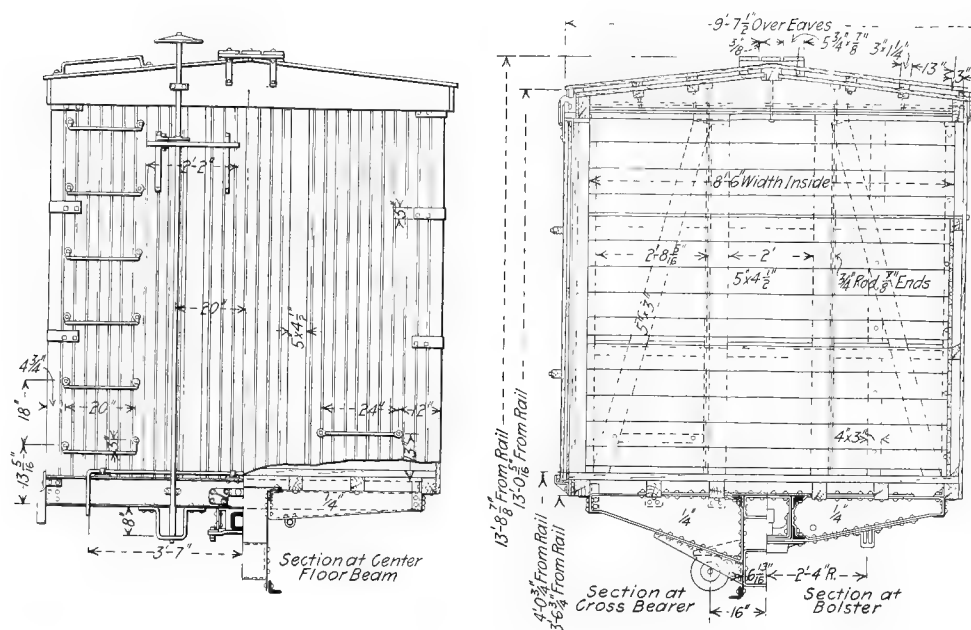 2'-2"
3"
20"
5"x4 1/2"
4 3/4"
18"
20"
3"
24"
12"
13"
13 5/16"
8"
1/4"
3'-7"
Section at Center
Floor Beam
9'-7 1/2" Over Eaves
3/8"
5 3/4"x 7/8"
3"x1 1/4"
13"
3"
8'-6" Width Inside
2'-8 5/16"
2'
5"x4 1/2"
3/4" Rod, 7/8" Ends
5"x3"
4"x3"
13'-8 7/8" From Rail
13'-0 5/16" From Rail
1/4"
1/4"
4'-0 3/4" From Rail
3'-6 3/4" From Rail
6 13/16"
2'-4" R.
16"
Section at
Cross Bearer
Section at
Bolster